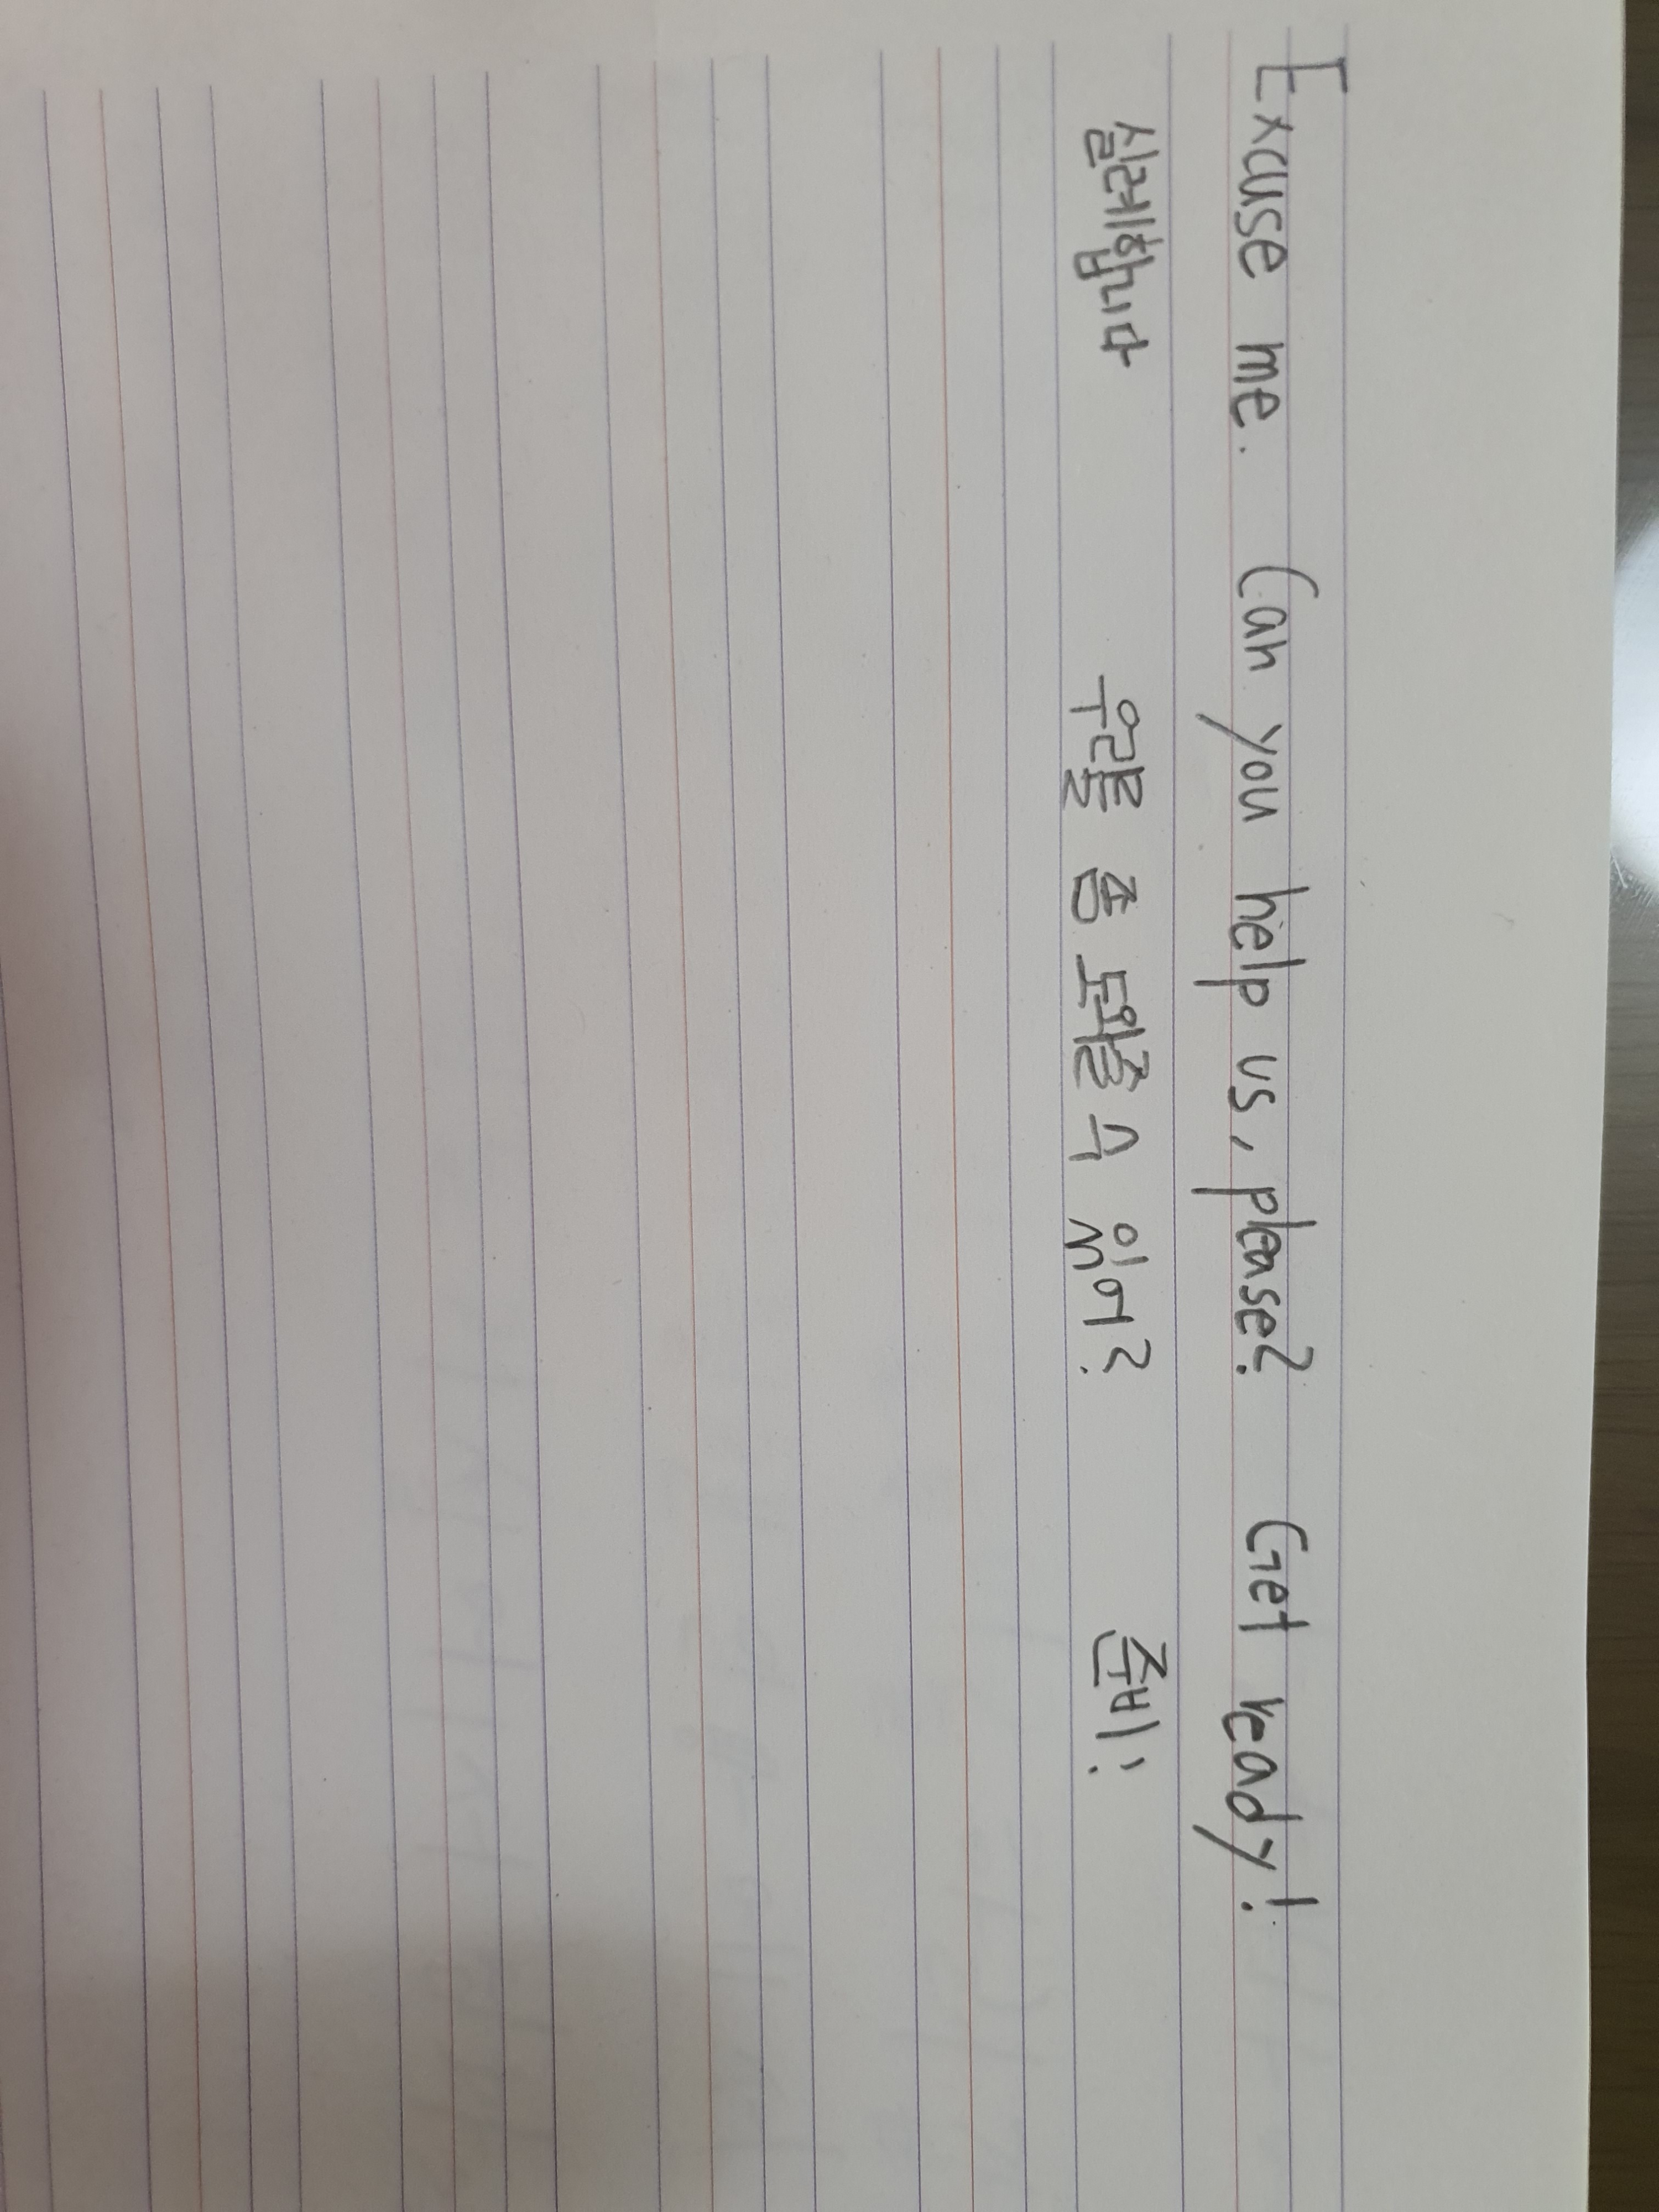 Excuse me. Can you help us, please? Get ready!
실례합니다 우릴 좀 도와줄 수 있어? 준비!